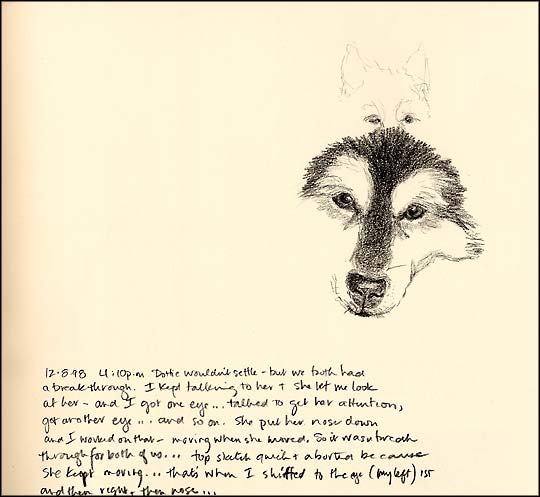 12·8·98 4:10p.m. Dottie wouldn't settle - but we both had
a breakthrough. I kept talking to her + she let me look
at her - and I got one eye... talked to get her attention,
got another eye... and so on. She put her nose down
and I worked on that - moving when she moved. So it was a break
through for both of us... top sketch quick + aborted because
she kept moving... that's when I shifted to the eye (my left) 1st
and then right + then nose...